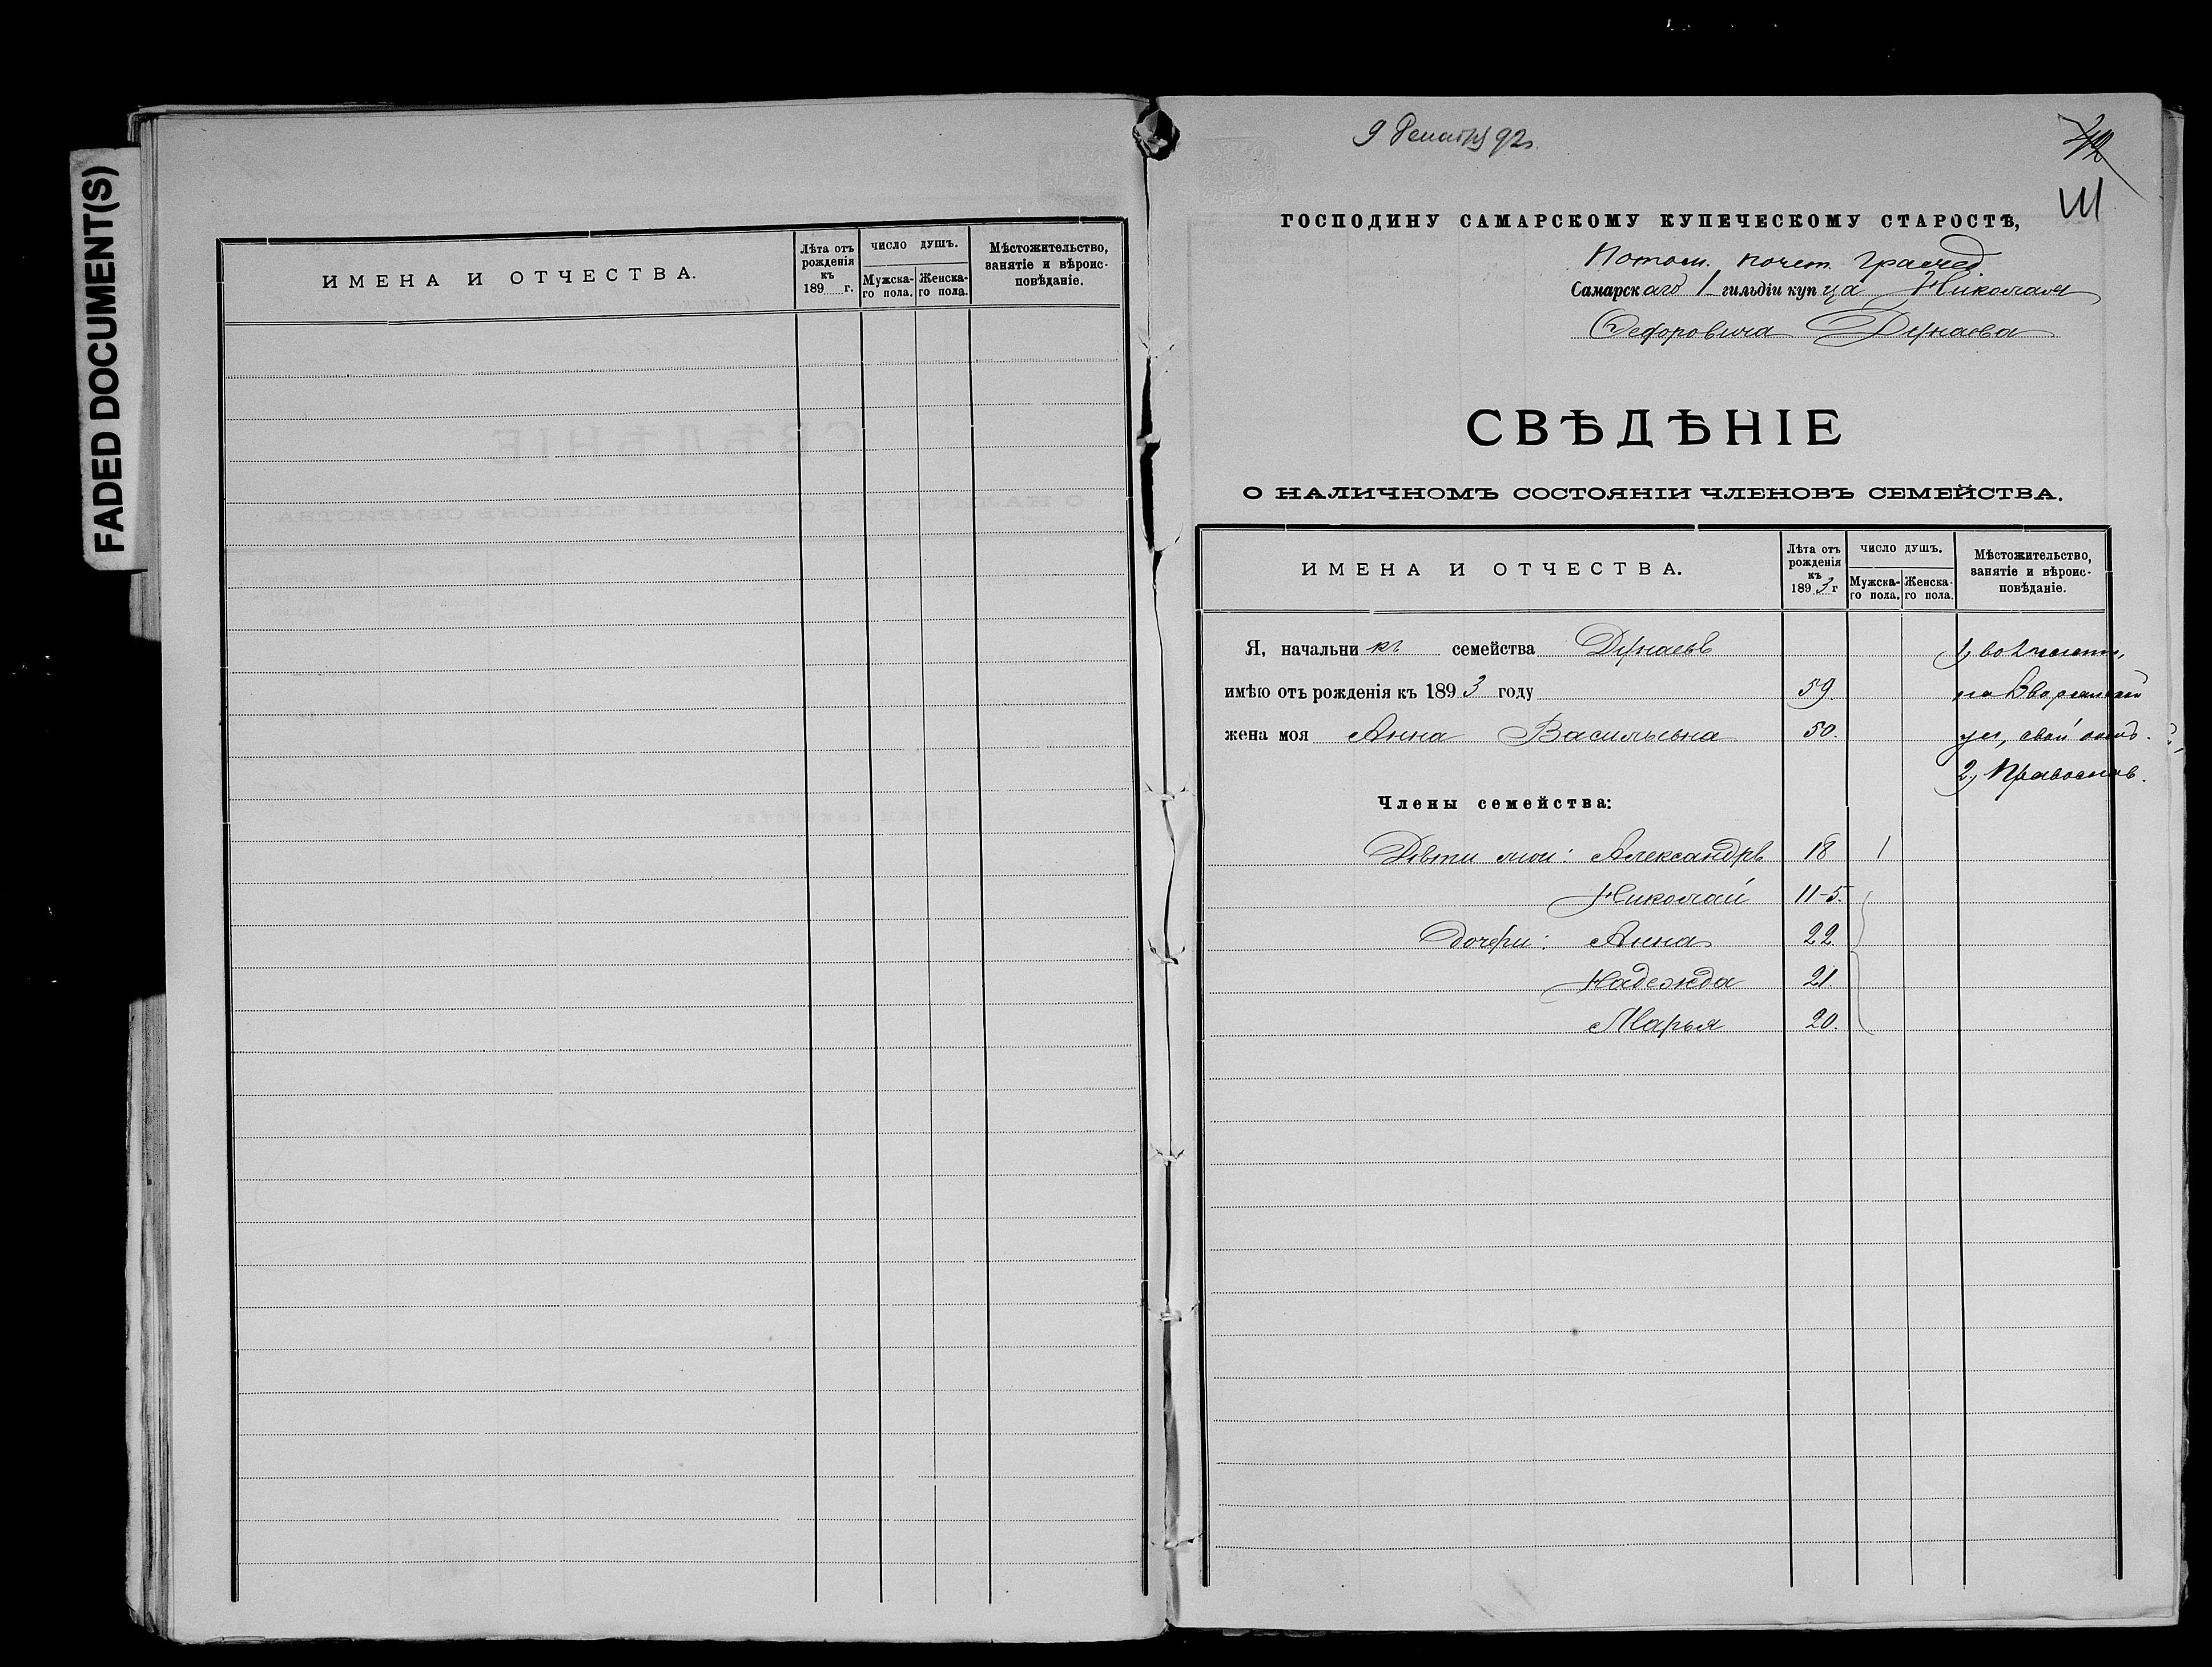 FADED DOCUMENT(S)
ИМЕНА И ОТЧЕСТВА.
Лѣта отъ
рожденія
къ
189 г.
ЧИСЛО ДУШЪ.
Мужска-
го пола.
Женска-
го пола.
Мѣстожительство,
занятіе и вѣроис-
повѣданіе.
9 Декабря 92 г.
111
ГОСПОДИНУ САМАРСКОМУ КУПЕЧЕСКОМУ СТАРОСТѢ,
Потом. почет. гражд.
Самарскаго 1 гильдіи купца Николая
Федоровича Дунаева
СВѢДѢНІЕ
О НАЛИЧНОМЪ СОСТОЯНІИ ЧЛЕНОВЪ СЕМЕЙСТВА.
ИМЕНА И ОТЧЕСТВА.
Лѣта отъ
рожденія
къ
1893 г
ЧИСЛО ДУШЪ.
Мужска-
го пола.
Женска-
го пола.
Мѣстожительство,
занятіе и вѣроис-
повѣданіе.
Я, начальникъ семейства Дунаевъ 1, во 2 части,
имѣю отъ рожденія къ 1893 году 59. на Дворянской
жена моя Анна Васильевна 50. ул, свой домъ.
2, Православ.
Члены семейства:
Дѣти мои: Александръ 18 1
Николай 11-5.
Дочери: Анна 22.
Надежда 21.
Марья 20.